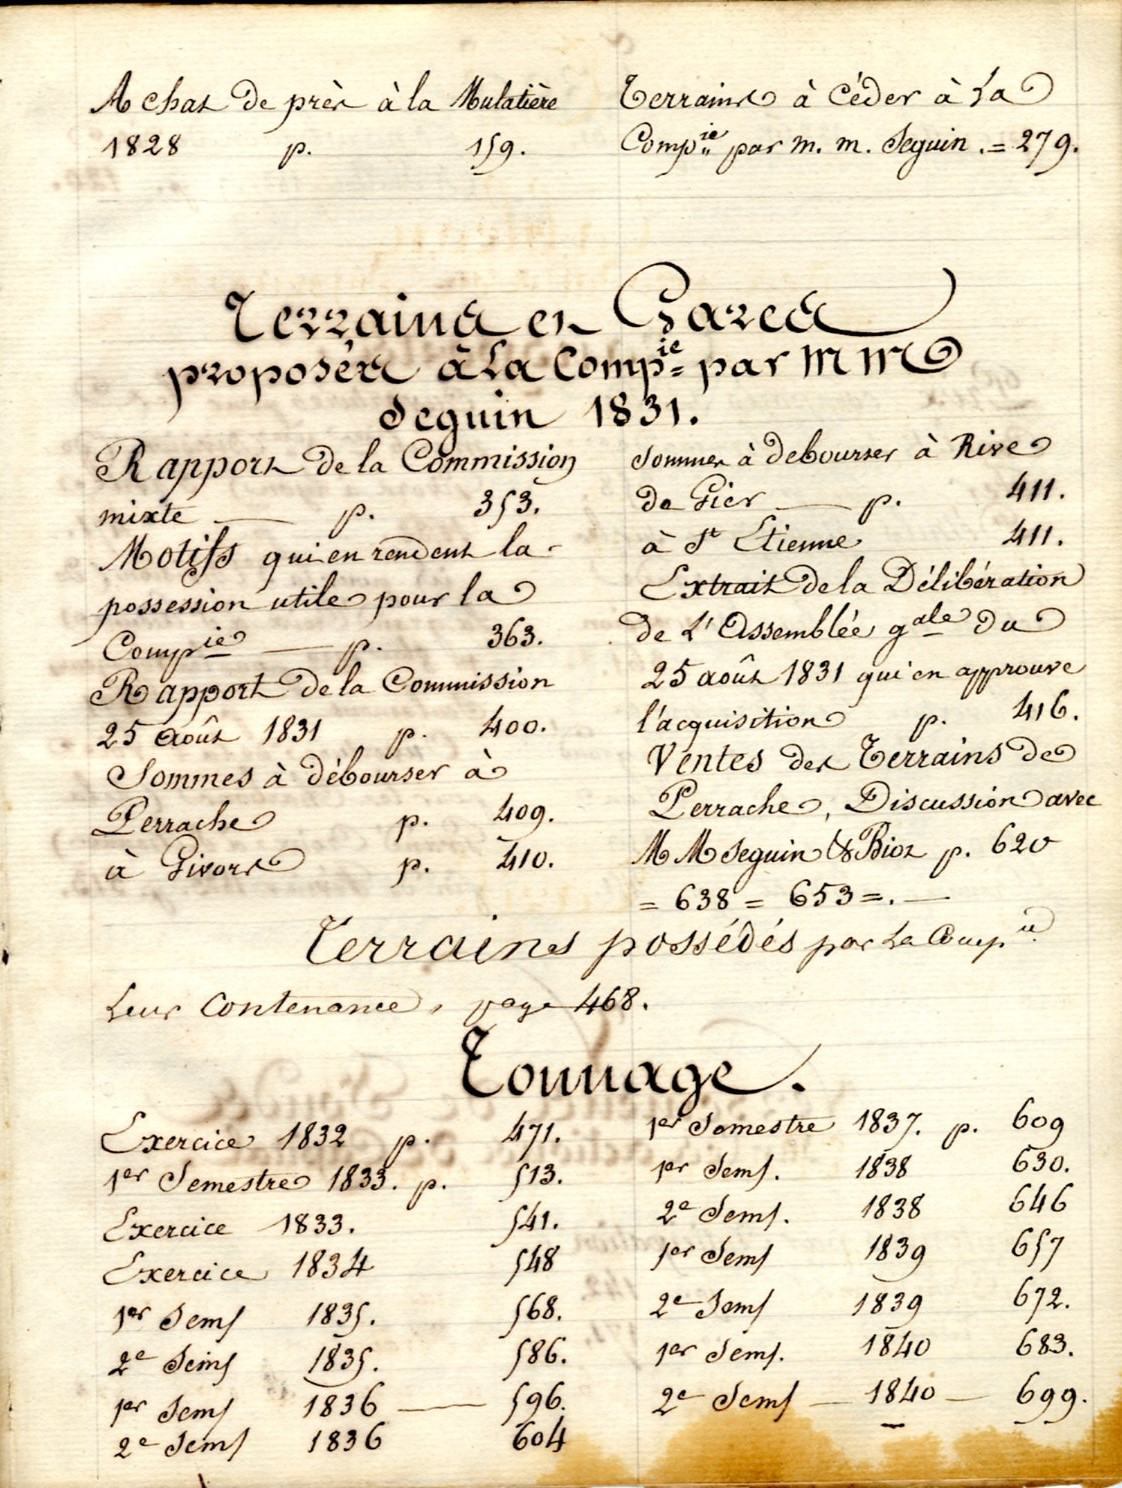 Achat de près à la Mulatière
1828 p. 159.
Terrains à Céder à La
Comp.ie par m. m. Seguin . = 279.
Terrains et Gares
proposés à La Comp.ie par M M
Seguin 1831.
Rapport de la Commission
mixte — p. 353.
Motifs qui en rendent la
possession utile pour la
Comp.ie — p. 363.
Rapport de la Commission
25 août 1831 p. 400.
Sommes à débourser à
Perrache p. 409.
à Givors p. 410.
Sommes à debourser à Rive
de Gier — p. 411.
à St Etienne 411.
Extrait de la Délibération
de L'Assemblée gale du
25 août 1831 qui en approuve
l'acquisition p. 416.
Ventes des Terrains de
Perrache, Discussion avec
M M Seguin & Biot p. 620
= 638 = 653 =. —
Terrains possédés par La Comp.ie
Leur Contenance, page 468.
Tonnage.
Exercice 1832 p. 471.
1er Semestre 1833. p. 513.
Exercice 1833. 541.
Exercice 1834 548
1er Sems 1835. 568.
2e Sems 1835. 586.
1er Sems 1836 — 596.
2e Sems 1836 604
1er Semestre 1837. p. 609
1er Sems. 1838 630.
2e Sems. 1838 646
1er Sems 1839 657
2e Sems 1839 672.
1er Sems. 1840 683.
2e Sems — 1840 — 699.